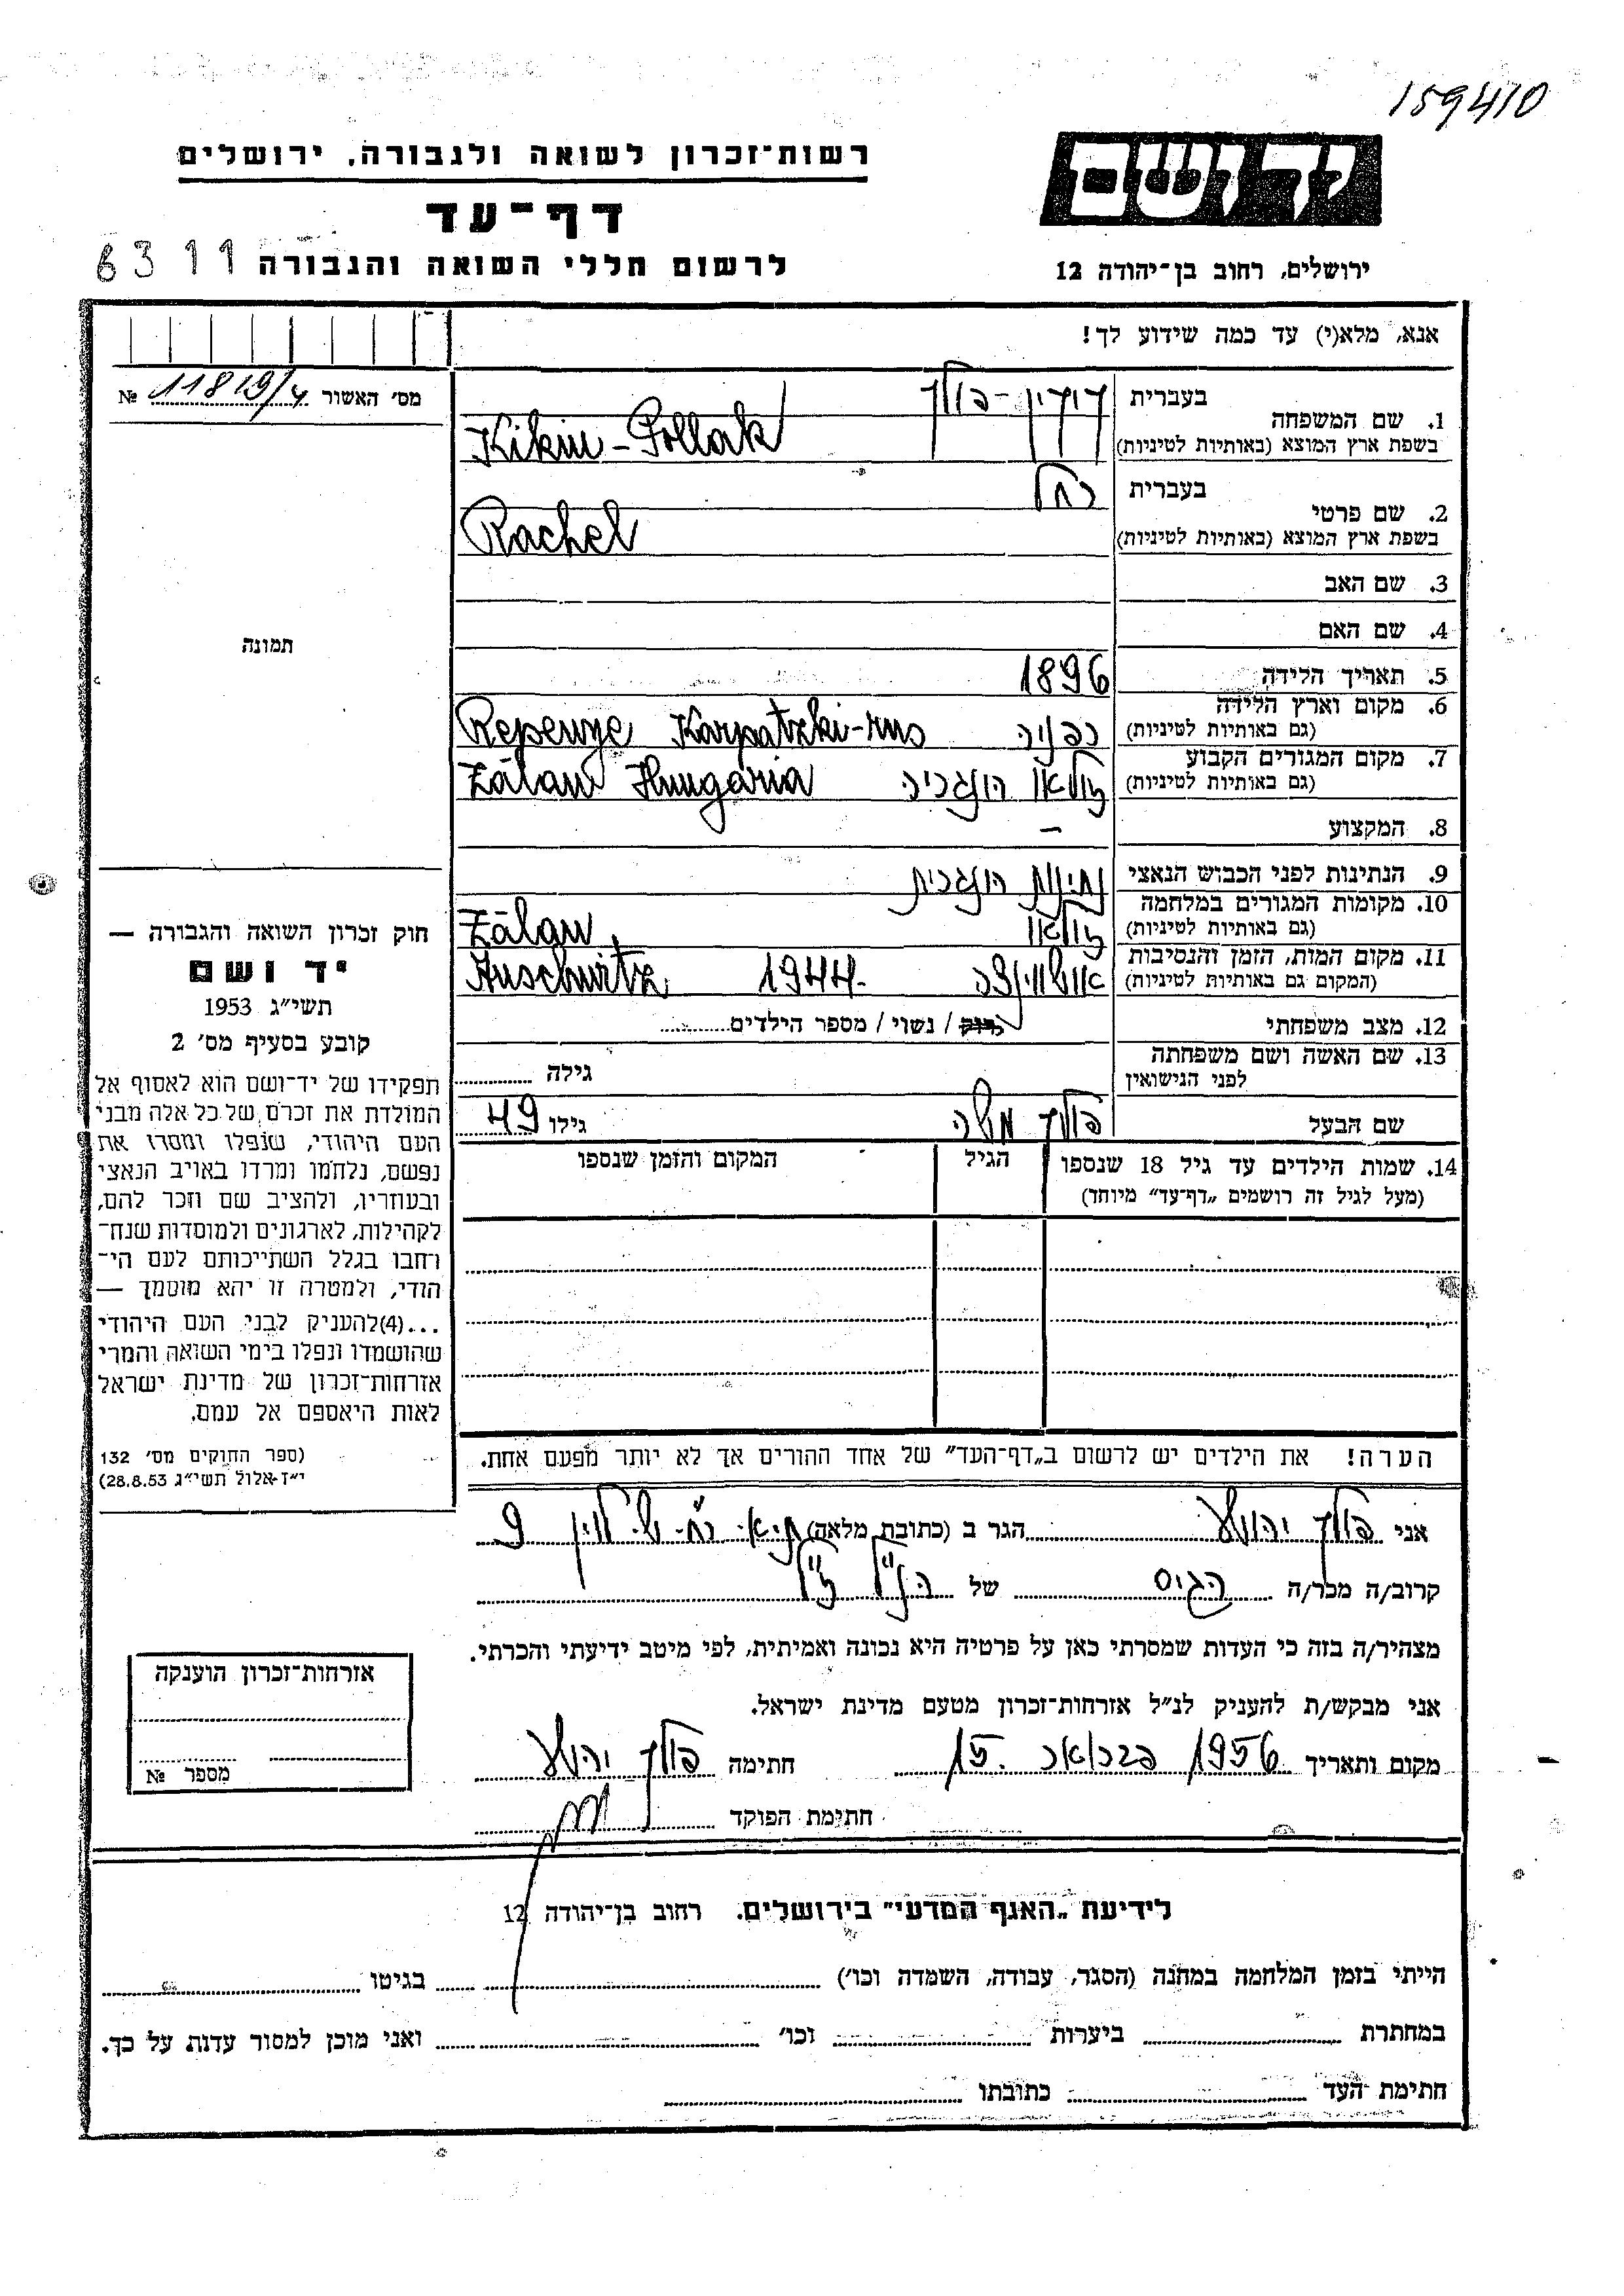 159410
יד ושם
רשות־זכרון לשואה ולגבורה, ירושלים
דף־עד
לרשום חללי השואה והגבורה
6311
ירושלים, רחוב בן־יהודה 12
אנא, מלא(י) עד כמה שידוע לך!
מס׳ האשור № 11819/4
תמונה
1. שם המשפחה
בעברית קיקין־פולק
בשפת ארץ המוצא (באותיות לטיניות) Kikin-Pollak
2. שם פרטי
בעברית רחל
בשפת ארץ המוצא (באותיות לטיניות) Rachel
3. שם האב
4. שם האם
5. תאריך הלידה 1896
6. מקום וארץ הלידה
(גם באותיות לטיניות) רפניה Repenye Karpatzki-rus
7. מקום המגורים הקבוע
(גם באותיות לטיניות) זולאו הונגריה Zālau Hungaria
8. המקצוע —
9. הנתינות לפני הכבוש הנאצי נתינות הונגרית
10. מקומות המגורים במלחמה
(גם באותיות לטיניות) זולאו Zālau,
11. מקום המות, הזמן והנסיבות
(המקום גם באותיות לטיניות) 1944- Auschwitz
12. מצב משפחתי רווק / נשוי / מספר הילדים
13. שם האשה ושם משפחתה
לפני הנישואין
גילה
שם הבעל פולק משה גילו 49
14. שמות הילדים עד גיל 18 שנספו
(מעל לגיל זה רושמים „דף־עד״ מיוחד)
הגיל
המקום והזמן שנספו
הערה! את הילדים יש לרשום ב„דף־העד״ של אחד ההורים אך לא יותר מפעם אחת.
חוק זכרון השואה והגבורה —
יד ושם
תשי״ג 1953
קובע בסעיף מס׳ 2
תפקידו של יד־ושם הוא לאסוף אל
המולדת את זכרם של כל אלה מבני
העם היהודי, שנפלו ומסרו את
נפשם, נלחמו ומרדו באויב הנאצי
ובעוזריו, ולהציב שם וזכר להם,
לקהילות, לארגונים ולמוסדות שנח־
רחבו בגלל השתייכותם לעם הי־
הודי, ולמטרה זו יהא מוסמך —
...(4)להעניק לבני העם היהודי
שהושמדו ונפלו בימי השואה והמרי
אזרחות־זכרון של מדינת ישראל
לאות היאספם אל עמם.
(ספר החוקים מס׳ 132
י״ז אלול תשי״ג 28.8.53)
אני פולק יהושע הגר ב (כתובת מלאה) ת״א. רח׳ ש. לוין 9
קרוב/ה מכר/ה הגיס של הנ״ל ז״ל
מצהיר/ה בזה כי העדות שמסרתי כאן על פרטיה היא נכונה ואמיתית, לפי מיטב ידיעתי והכרתי.
אני מבקש/ת להעניק לנ״ל אזרחות־זכרון מטעם מדינת ישראל.
מקום ותאריך 15. פברואר 1956 חתימה פולק יהושע
חתימת הפוקד
אזרחות־זכרון הוענקה
מספר №
לידיעת „האגף המדעי״ בירושלים. רחוב בן־יהודה 12
הייתי בזמן המלחמה במחנה (הסגר, עבודה, השמדה וכו׳) בגיטו
במחתרת ביערות וכו׳ ואני מוכן למסור עדות על כך.
חתימת העד כתובתו